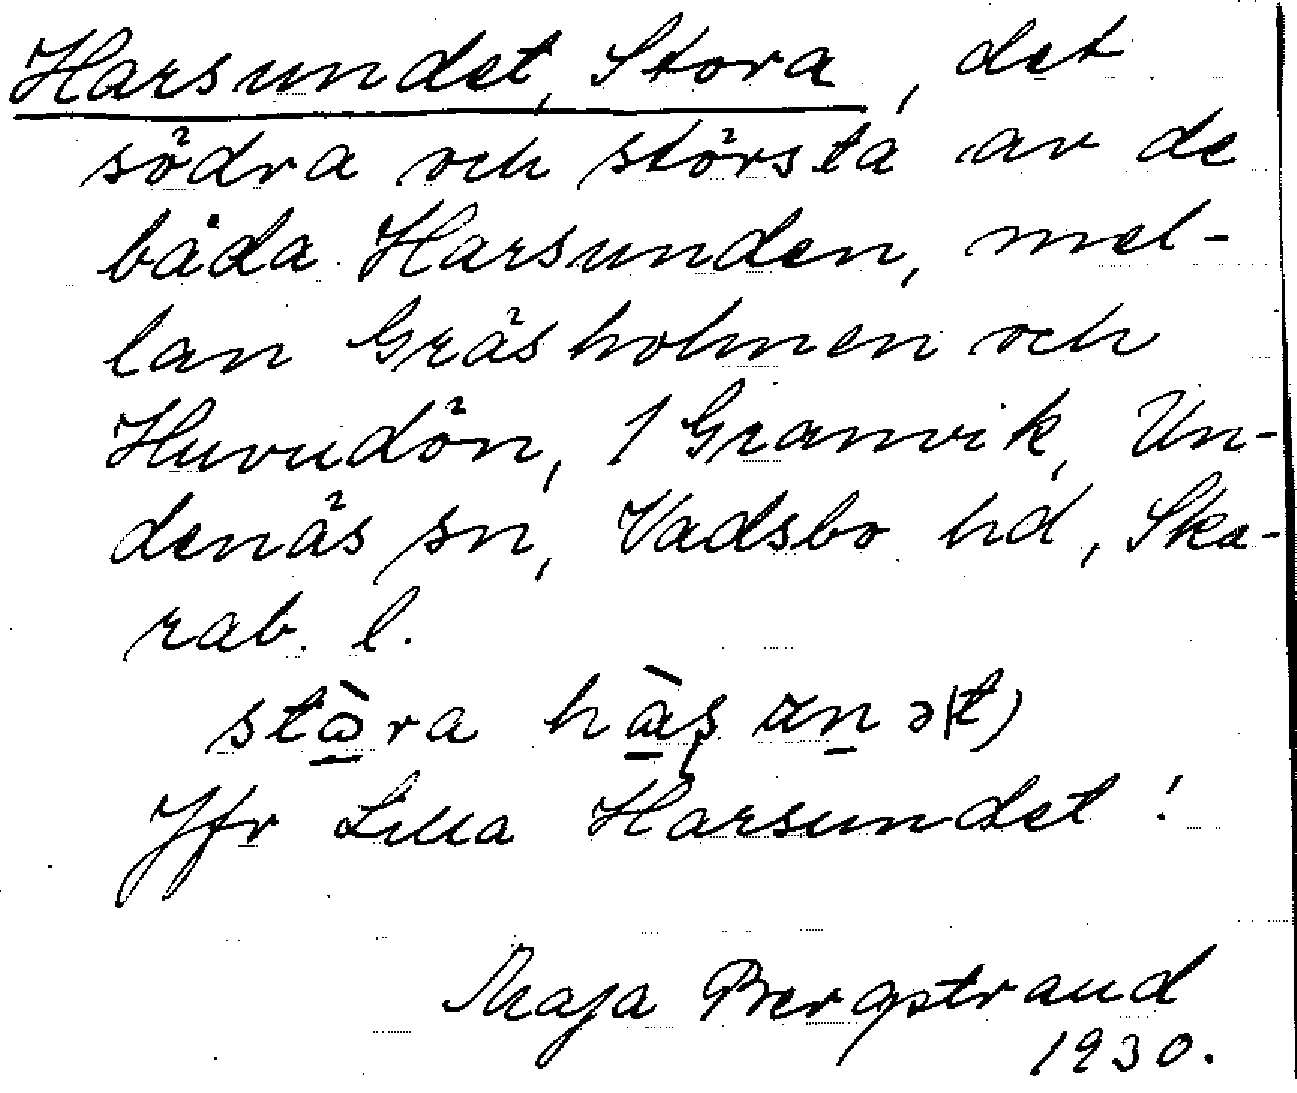 Harsundet, Stora, det
södra och största av de
båda Harsunden, mel-
lan Gräsholmen och
Huvudön, 1 Granvik, Un-
denäs sn, Vadsbo hd, Ska-
rab. l.
Jfr Lilla Harsundet!
Maja Bergstrand
1930.